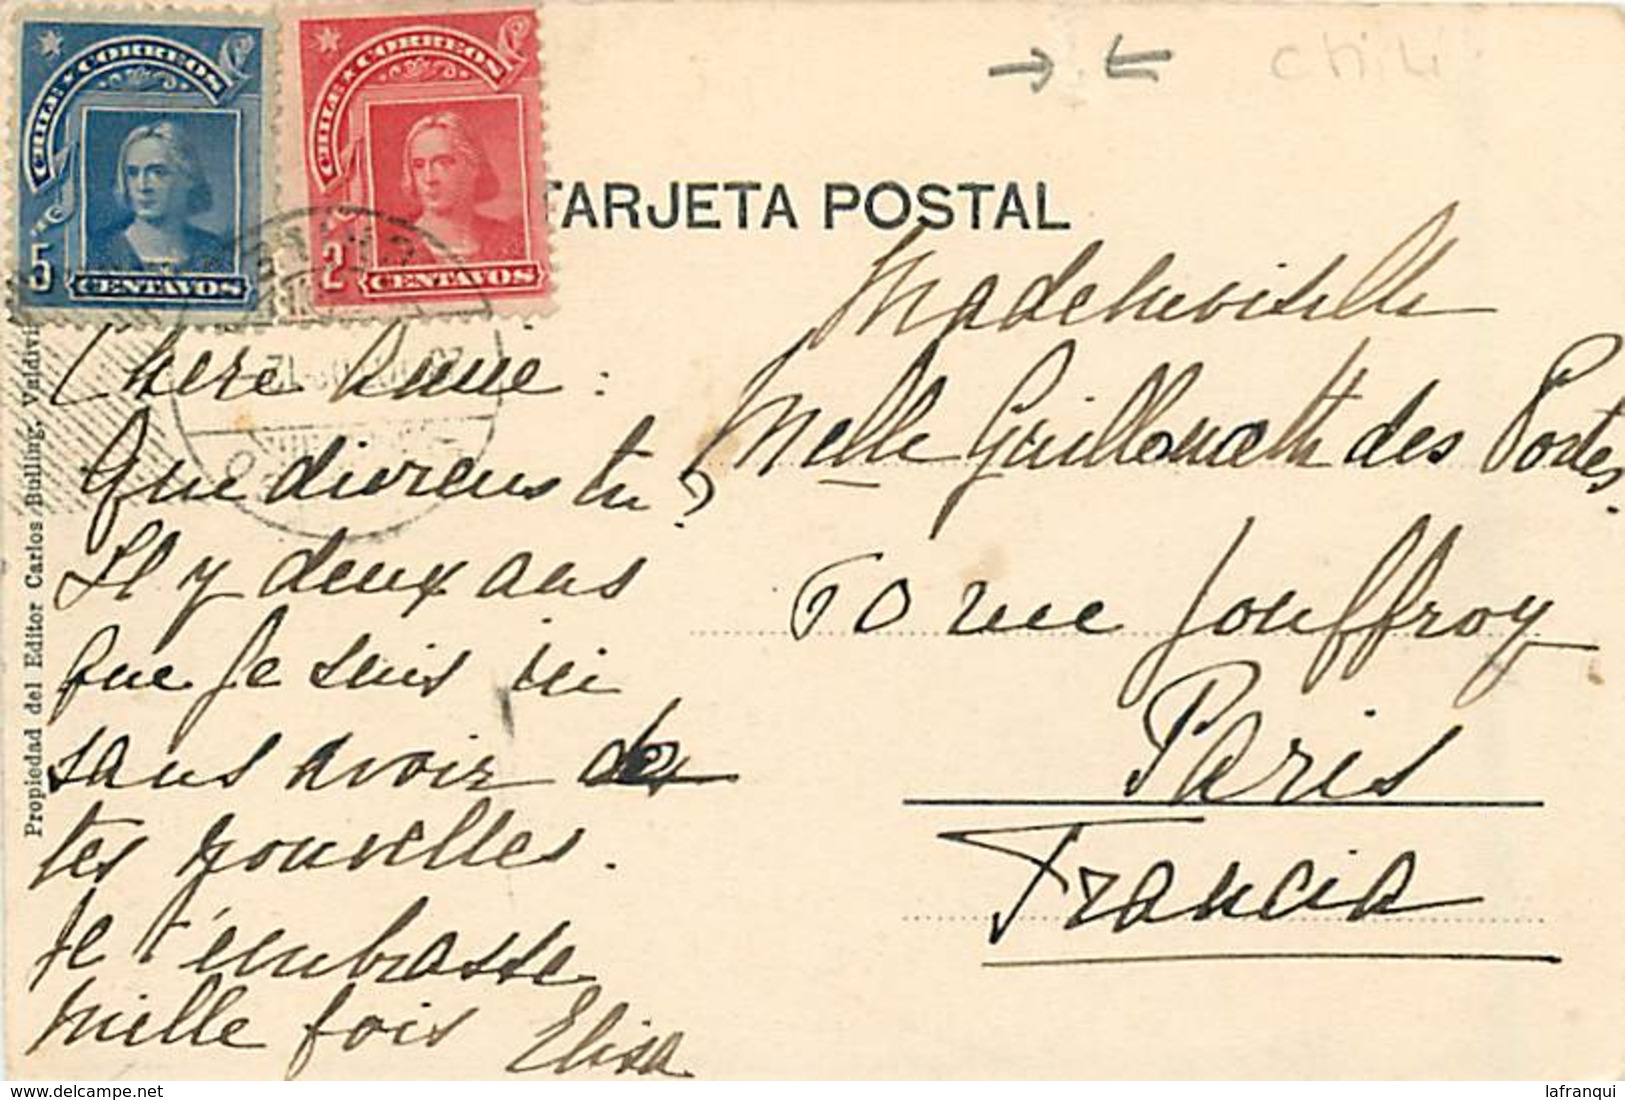 CHILE CORREOS
5
CENTAVOS
CHILE CORREOS
2
CENTAVOS
chili
TARJETA POSTAL
Propiedad del Editor Carlos Bolling, Valdivi
Chere Amie :
Que diviens tu ?
Il y deux ans
que je suis ici
sans avoir de
tes nouvelles.
Je t'embrasse
mille fois Elisa
Mademoiselle
Melle des Postes
rue Jouffroy
Paris
Francia
lafranqui